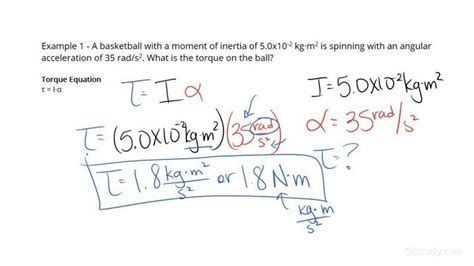 Example 1 - A basketball with a moment of inertia of 5.0x10⁻² kg·m² is spinning with an angular
acceleration of 35 rad/s². What is the torque on the ball?
Torque Equation
τ = I·α
τ = I α
I = 5.0×10⁻² kg·m²
τ = (5.0×10⁻² kg·m²)(35 rad/s²)
α = 35 rad/s²
τ = ?
τ = 1.8 kg·m²/s² or 1.8 N·m
kg·m/s²
Study.com